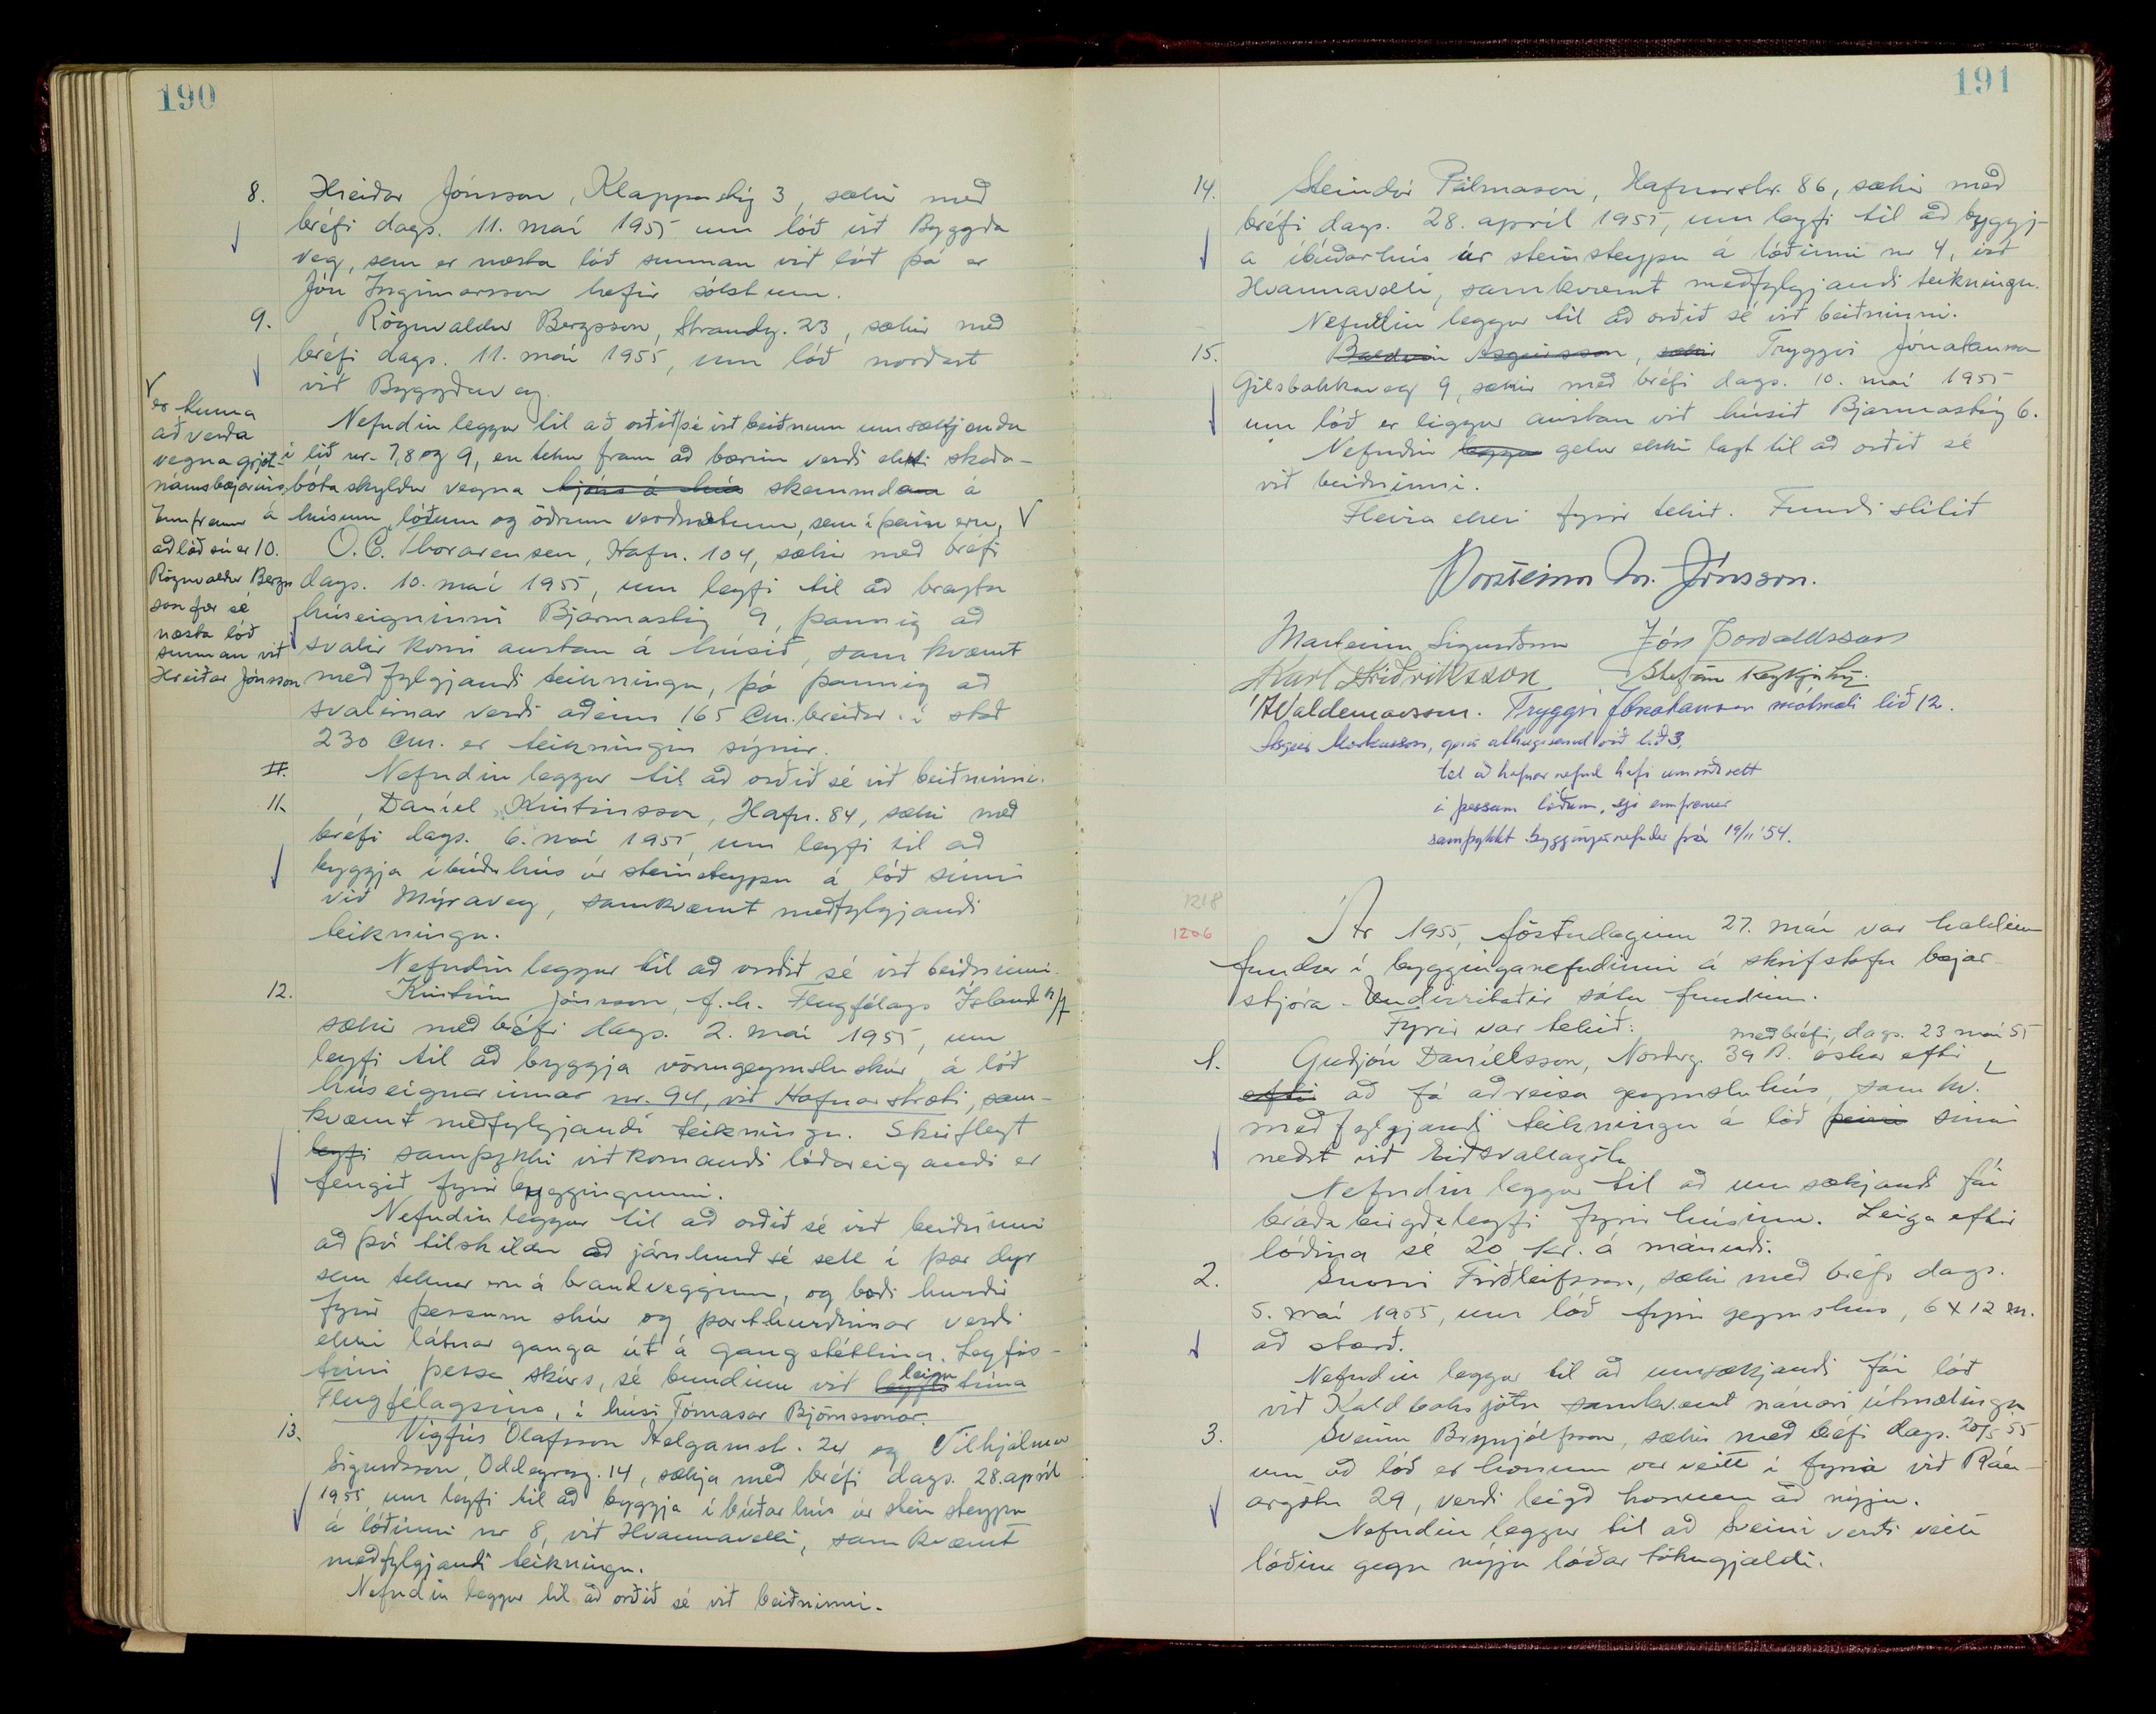 190
8. Hreiðar Jónsson, Klapparstíg 3, sækir með
bréfi dags. 11. maí 1955 um lóð við Byggða
veg, sem er næsta lóð sunnan við lóð þá er
Jón Ingimarsson hefir sótst um.
9. Rögnvaldur Bergsson, Strandg. 23, sækir með
bréfi dags. 11. maí 1955, um lóð norðast
við Byggðaveg.
Nefndin leggur til að orðið sé við beiðnum umsækjenda
í lið nr. 7, 8 og 9, en tekur fram að bærinn verði ekki skaða-
bótaskyldur vegna skemmda á
húsum, lóðum og öðrum verðmætum, sem í þeim eru, V
V
er kunna
að verða
vegna grjót-
náms bæjarins,
Ennfremur á
að lóð sú er 10.
Rögnvaldur Bergs
son fær sé
næsta lóð
sunnan við
Hreiðar Jónsson
O.C. Thorarensen, Hafn. 104, sækir með bréfi
dags. 10. maí 1955, um leyfi til að breyta
húseigninni Bjarmastíg 9, þannig að
svalir komi austan á húsið, samkvæmt
meðfylgjandi teikningu, þó þannig að
svalirnar verði aðeins 165 cm. breiðar í stað
230 cm. er teikningin sýnir.
Nefndin leggur til að orðið sé við beiðninni.
11. Daníel Kristinsson, Hafn. 84, sækir með
bréfi dags. 6. maí 1955, um leyfi til að
byggja íbúðarhús úr steinsteypu á lóð sinni
við Mýraveg, samkvæmt meðfylgjandi
teikningu.
Nefndin leggur til að orðið sé við beiðninni.
12. Kristinn Jónsson, f.h. Flugfélags Íslands h/f
sækir með bréfi dags. 2. maí 1955, um
leyfi til að byggja vörugeymsluskúr, á lóð
húseignarinnar nr. 94, við Hafnarstræti, sam-
kvæmt meðfylgjandi teikningu. Skriflegt
leyfi samþykki viðkomandi lóðareiganda er
fengið fyrir byggingunni.
Nefndin leggur til að orðið sé við beiðninni
að því tilskildu að járnhurð sé sett í þær dyr
sem teknar eru á brandvegginn, og báðar hurðir
fyrir þessum skúr og porthurðirnar verði
ekki látnar ganga út á gangstéttina. Leyfis-
tími þessa skúrs, sé bundinn við leigutíma
Flugfélagsins, í húsi Tómasar Björnssonar.
13. Vigfús Ólafsson Helgamstr. 24 og Vilhjálmur
Sigurðsson, Oddeyrarg. 14, sækja með bréfi dags. 28. apríl
1955, um leyfi til að byggja íbúðarhús úr steinsteypu
á lóðinni nr 8, við Hvannavelli, samkvæmt
meðfylgjandi teikningu.
Nefndin leggur til að orðið sé við beiðninni.
191
14. Steindór Pálmason, Hafnarstr. 86, sækir með
bréfi dags. 28. apríl 1955, um leyfi til að byggj-
a íbúðarhús úr steinsteypu á lóðinni nr 4, við
Hvannavelli, samkvæmt meðfylgjandi teikningu.
Nefndin leggur til að orðið sé við beiðninni.
15. Baldvin Ásgeirsson, sækir Tryggvi Jónatansson
Gilsbakkaveg 9, sækir með bréfi dags. 10. maí 1955
um lóð er liggur austan við húsið Bjarmastíg 6.
Nefndin leggur getur ekki lagt til að orðið sé
við beiðninni.
Fleira ekki fyrir tekið. Fundi slitið
Þorsteinn M. Jónsson.
Marteinn Sigurðsson Jón Þorvaldsson
Karl Friðriksson Stefán Reykjalín.
A Valdemarsson. Tryggvi Jónatansson mótmæli lið 12.
Ásgeir Markússon, geri athugasemd við lið 3,
tel að hafnarnefnd hafi umráðarétt
á þessum lóðum, sjá ennfremur
samþykkt byggingarnefndar frá 19/11 '54.
1218
1206
Ár 1955, föstudaginn 27. maí var haldinn
fundur í bygginganefndinni á skrifstofu bæjar
stjóra. Undirritaðir sátu fundinn.
Fyrir var tekið:
með bréfi, dags. 23 maí 55
1. Guðjón Daníelsson, Norðurg. 39 B. óskar eftir
eftir að fá að reisa geymsluhús, samkv.
meðfylgjandi teikningu á lóð þeirri sinni
neðst við Eiðsvallagötu
Nefndin leggur til að umsækjandi fái
bráðabirgðaleyfi fyrir húsinu. Leiga eftir
lóðina sé 20 kr. á mánuði.
2. Snorri Friðleifsson, sækir með bréfi dags.
5. maí 1955, um lóð fyrir geymsluhús, 6 x 12 m.
að stærð.
Nefndin leggur til að umsækjandi fái lóð
við Kaldbaksgötu samkvæmt nánari útmælingu
3. Sveinn Brynjólfsson, sækir með bréfi dags. 20/5 55
um að lóð er honum var veitt í fyrra við Rán-
argötu 29, verði leigð honum að nýju.
Nefndin leggur til að Sveini verði veitt
lóðin gegn nýju lóðartökugjaldi.